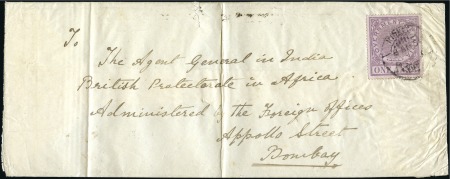 To
The Agent General in India
British Protectorate in Africa
Administered by the Foreign Offices
Appollo Street
Bombay
ONE